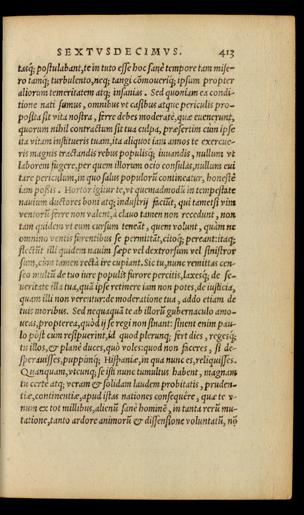 SEXTVSDECIMVS. 413
tatq́; postulabant, te in tuto esse hoc sanè tempore tam mise-
ro tamq́; turbulento, neq; tangi cõmouerìq́; ipsum propter
aliorum temeritatem atq; insanias. Sed quoniam ea condi-
tione nati sumus, omnibus vt casibus atque periculis pro-
posita sit vita nostra, ferre debes moderatè, quæ euenerunt,
quorum nihil contractum sit tua culpa, præsertim cùm ipse
ita vitam institueris tuam, ita aliquot iam annos te exercue-
ris magnis tractandis rebus populisq́; iuuandis, nullum vt
laborem fugere, per quem illorum ocio consulas, nullum eui
tare periculum, in quo salus populorũ contineatur, honestè
iam possis. Hortor igitur te, vt quemadmodũ in tempestate
nauium ductores boni atq; industrij faciũt, qui tametsi vim
ventorũ ferre non valent, à clauo tamen non recedunt, non
tam quidem vt eum cursum teneãt, quem volunt, quàm ne
omnino ventis furentibus se permittãt, citoq́; pereant: itaq;
flectũt illi quidem nauim sæpe vel dextrorsum vel sinistror
sum, eam tamen rectà ire cupiant. Sic tu, nunc remittas cen-
seo multũ de tuo iure populis furore percitis, laxesq́; de se-
ueritate illa tua, quã ipse retinere iam non potes, de iusticia,
quam illi non verentur: de moderatione tua, addo etiam de
tuis moribus. Sed nequaquã te ab illorũ gubernaculo amo-
ueas, propterea, quòd ij se regi non sinant: sinent enim pau-
lo pòst cum respuerint, id quod plerunq; fert dies, regesq́;
tu illos, & planè duces, quò voles: quod non faceres, si de-
sperauisses, puppimq́; Hispaniæ, in qua nunc es, reliquisses.
Quanquam, vtcunq; se isti nunc tumultus habent, magnam
tu certè atq; veram & solidam laudem probitatis, pruden-
tiæ, continentiæ, apud istas nationes consequêre, qua te v-
num ex tot millibus, alienũ sanè hominẽ, in tanta rerũ mu-
tatione, tanto ardore animorũ & dissensione voluntatũ, nõ